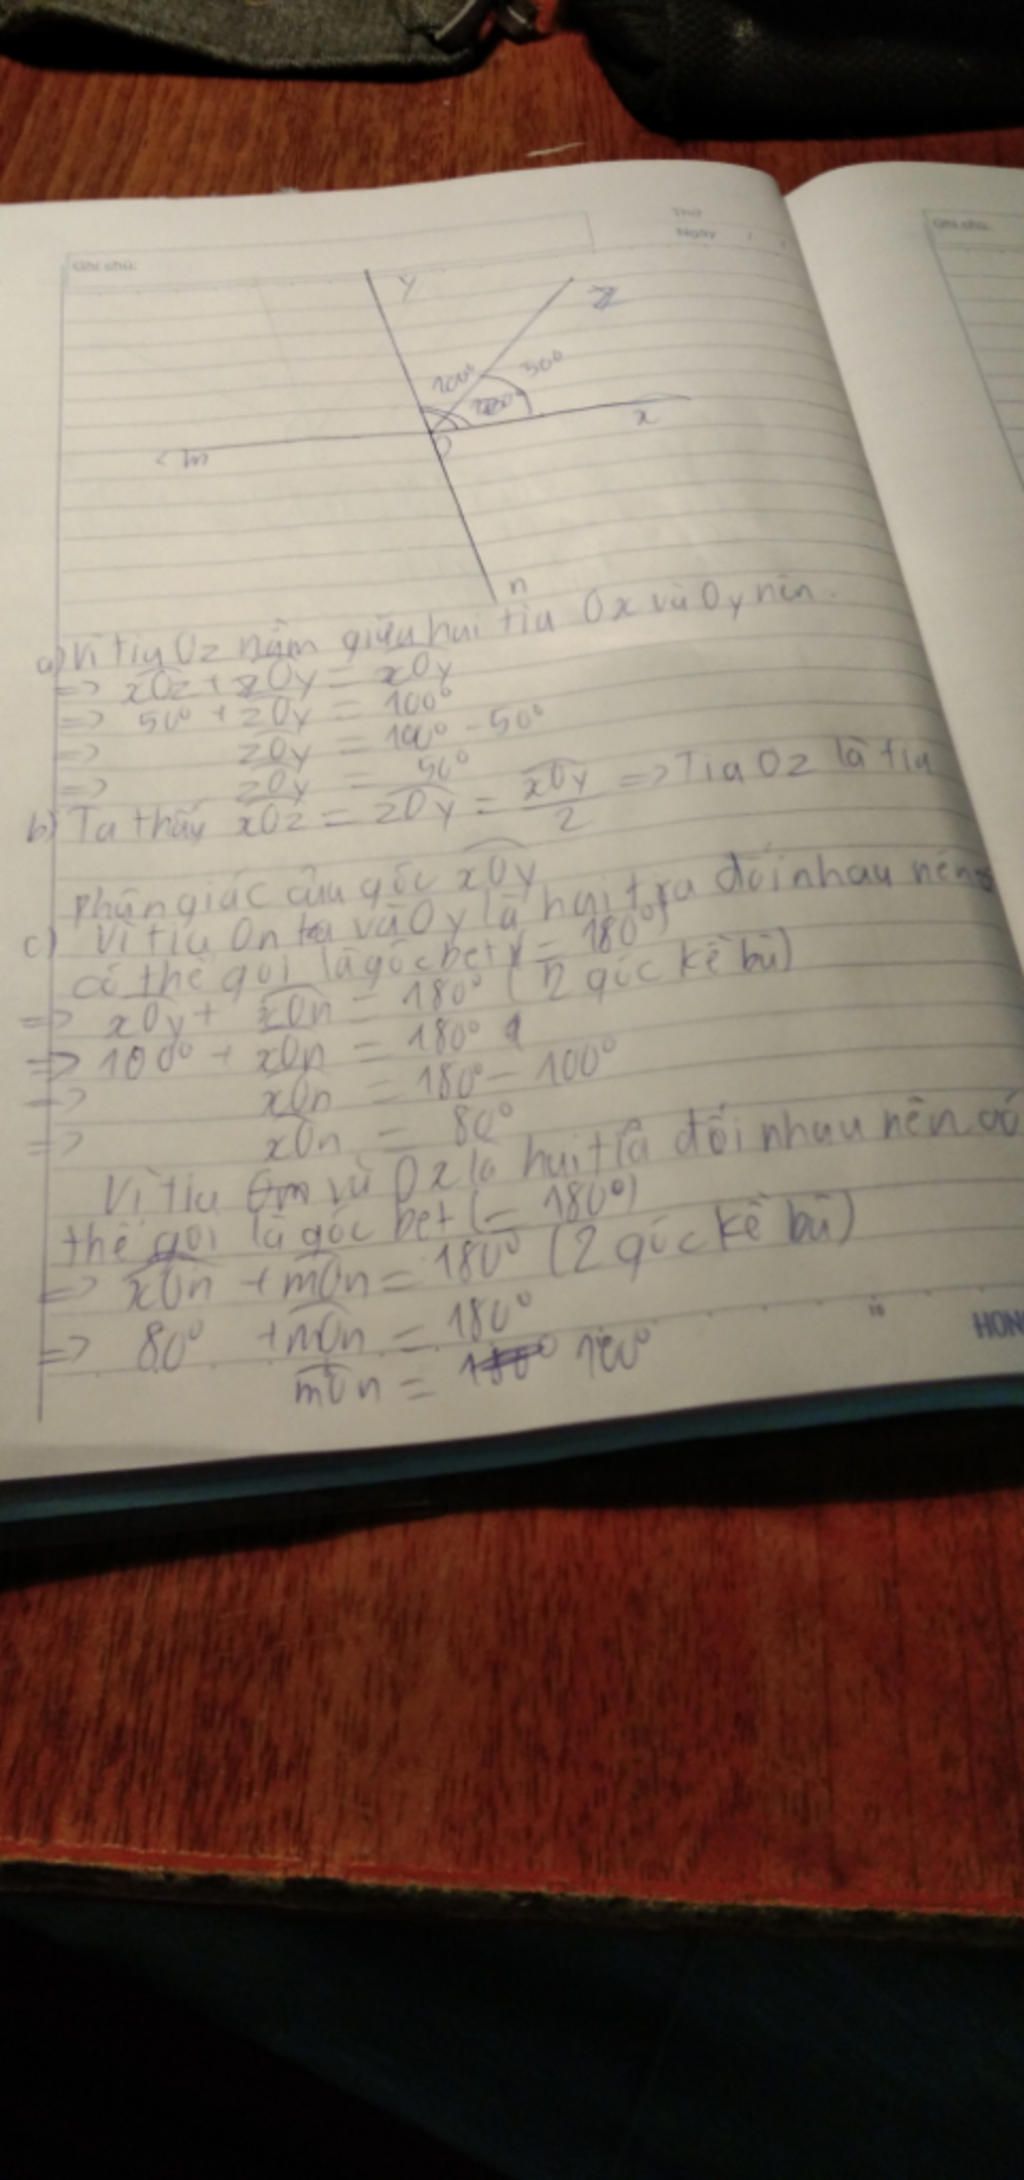 Thứ
Ngày / /
Ghi chú:
Ghi chú:
y
z
100°
50°
x
O
m
n
a) Vì tia Oz nằm giữa hai tia Ox và Oy nên.
=> xOz + zOy = xOy
=> 50° + zOy = 100°
=> zOy = 100° - 50°
=> zOy = 50°
b) Ta thấy xOz = zOy = xOy/2 => Tia Oz là tia
phân giác của góc xOy
c) Vì tia On và Oy là hai tia đối nhau nên
có thể gọi là góc bet (= 180°)
=> xOy + xOn = 180° (2 góc kề bù)
=> 100° + xOn = 180°
=> xOn = 180° - 100°
=> xOn = 80°
Vì tia Om và Ox là hai tia đối nhau nên có
thể gọi là góc bet (= 180°)
=> xOn + mOn = 180° (2 góc kề bù)
=> 80° + mOn = 180°
mOn = 100°
HON